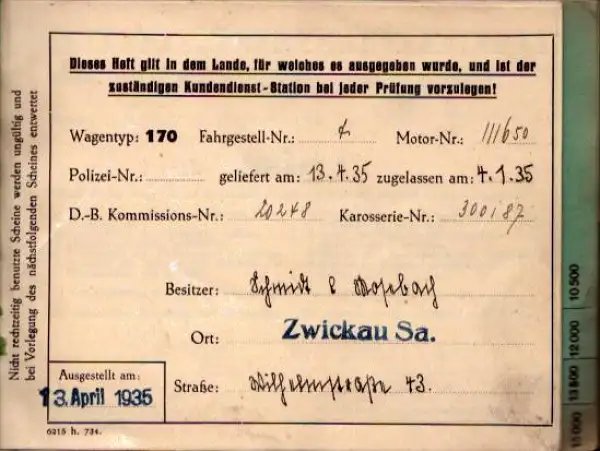 Dieses Heft gilt in dem Lande, für welches es ausgegeben wurde, und ist der
zuständigen Kundendienst-Station bei jeder Prüfung vorzulegen!
Wagentyp: 170 Fahrgestell-Nr.: Motor-Nr.: 111650
Polizei-Nr.: geliefert am: 13.4.35 zugelassen am: 4.1.35
D.-B. Kommissions-Nr.: 20248 Karosserie-Nr.: 300187
Besitzer: Schmidt & Mosebach
Ort: Zwickau Sa.
Straße: Wilhelmstraße 43.
Ausgestellt am:
13. April 1935
6215 h. 734.
Nicht rechtzeitig benutzte Scheine werden ungültig und
bei Vorlegung des nächstfolgenden Scheines entwertet
10 500
12 000
13 500
15 000